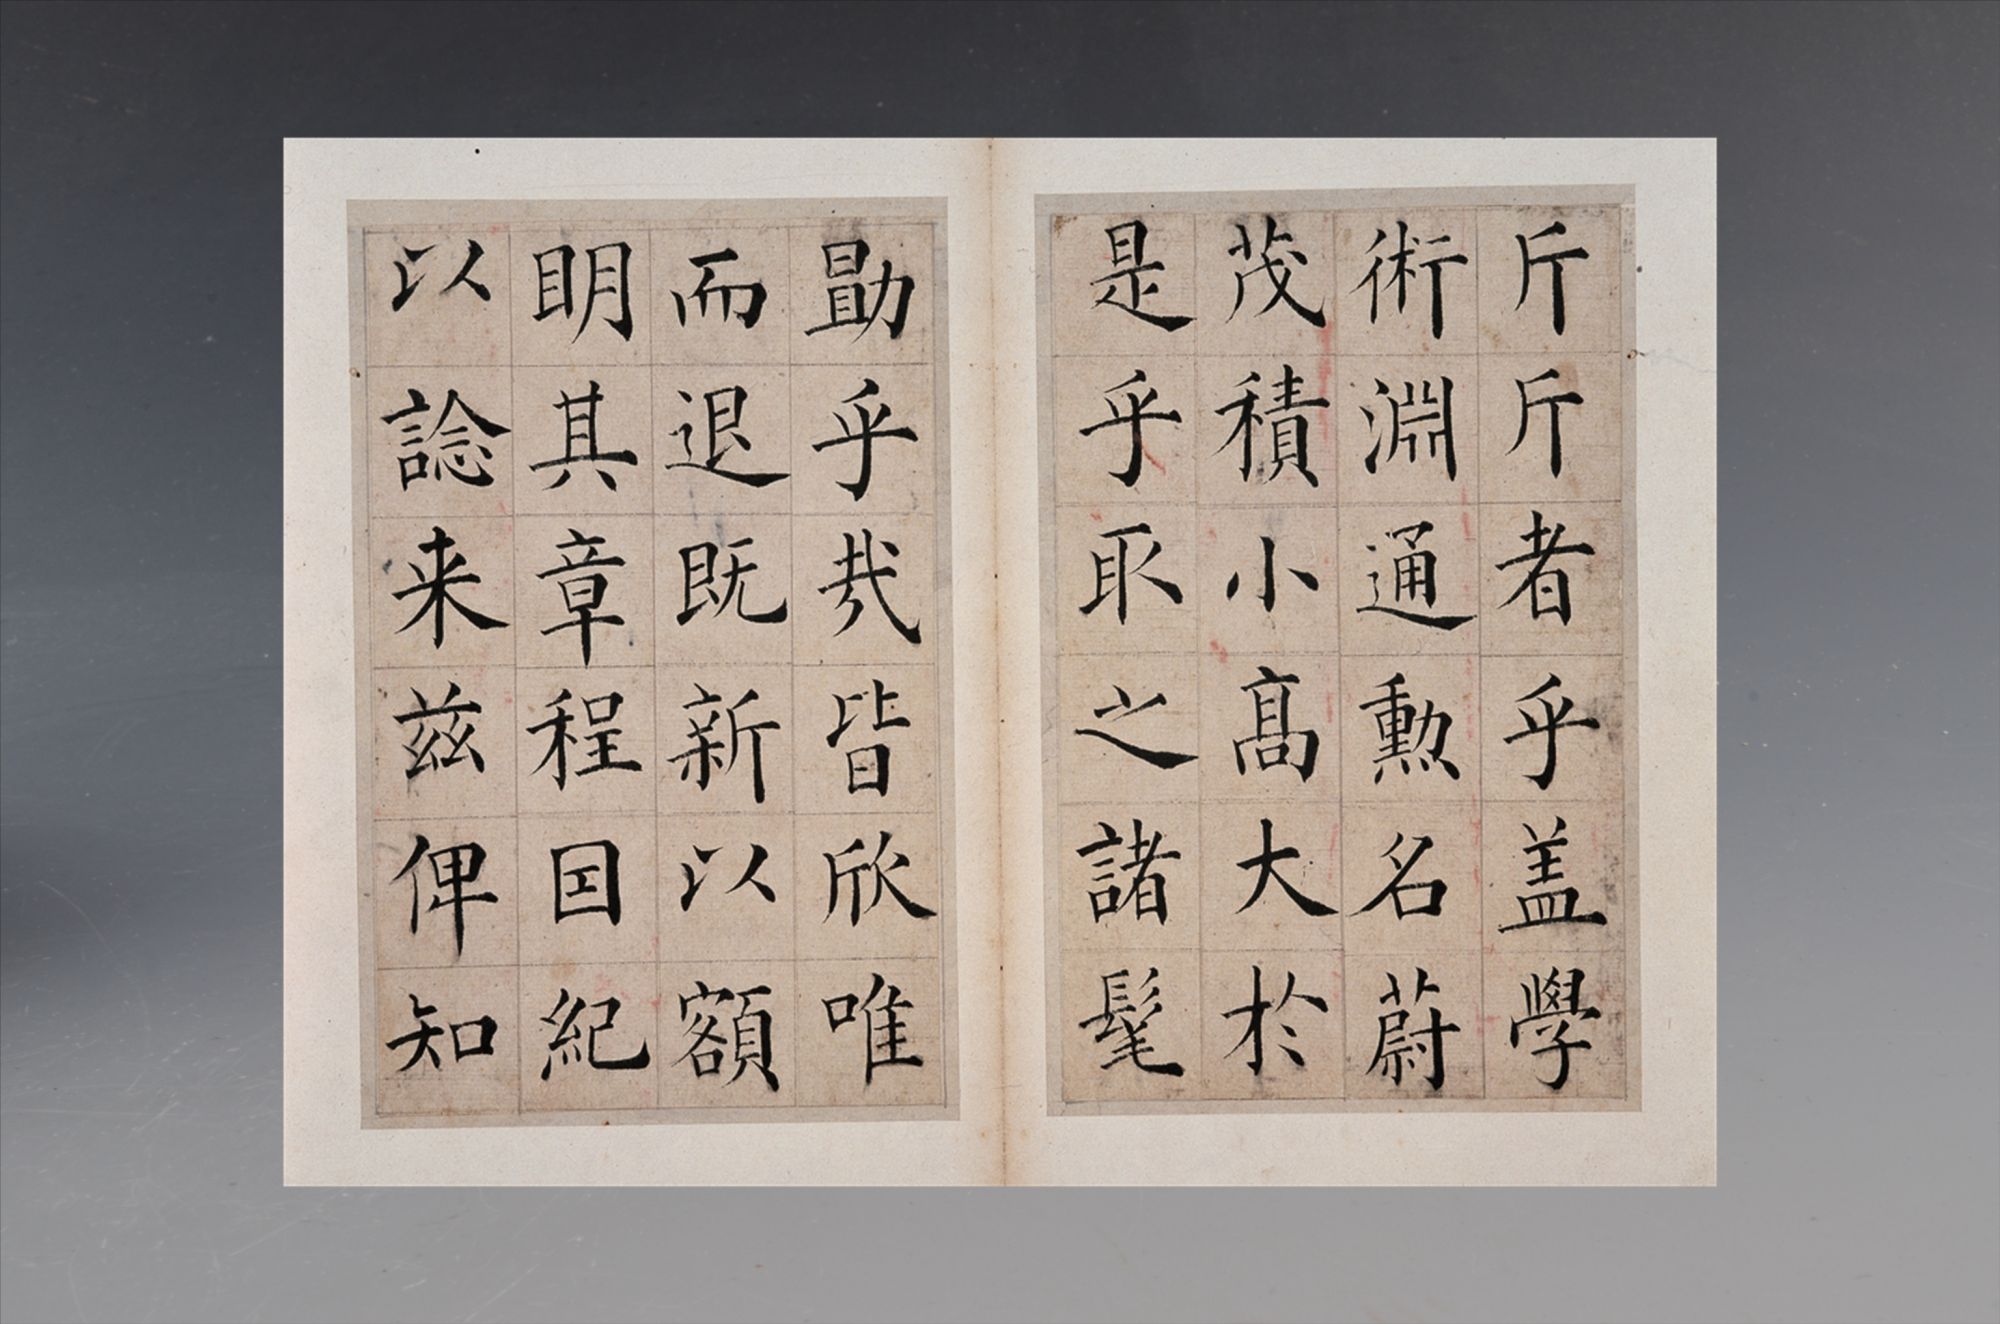 斤斤者乎盖學
術淵通勲名蔚
茂積小髙大於
是乎取之諸髦
勖乎㢤皆欣唯
而退既新以額
眀其章程因紀
以諗来兹俾知